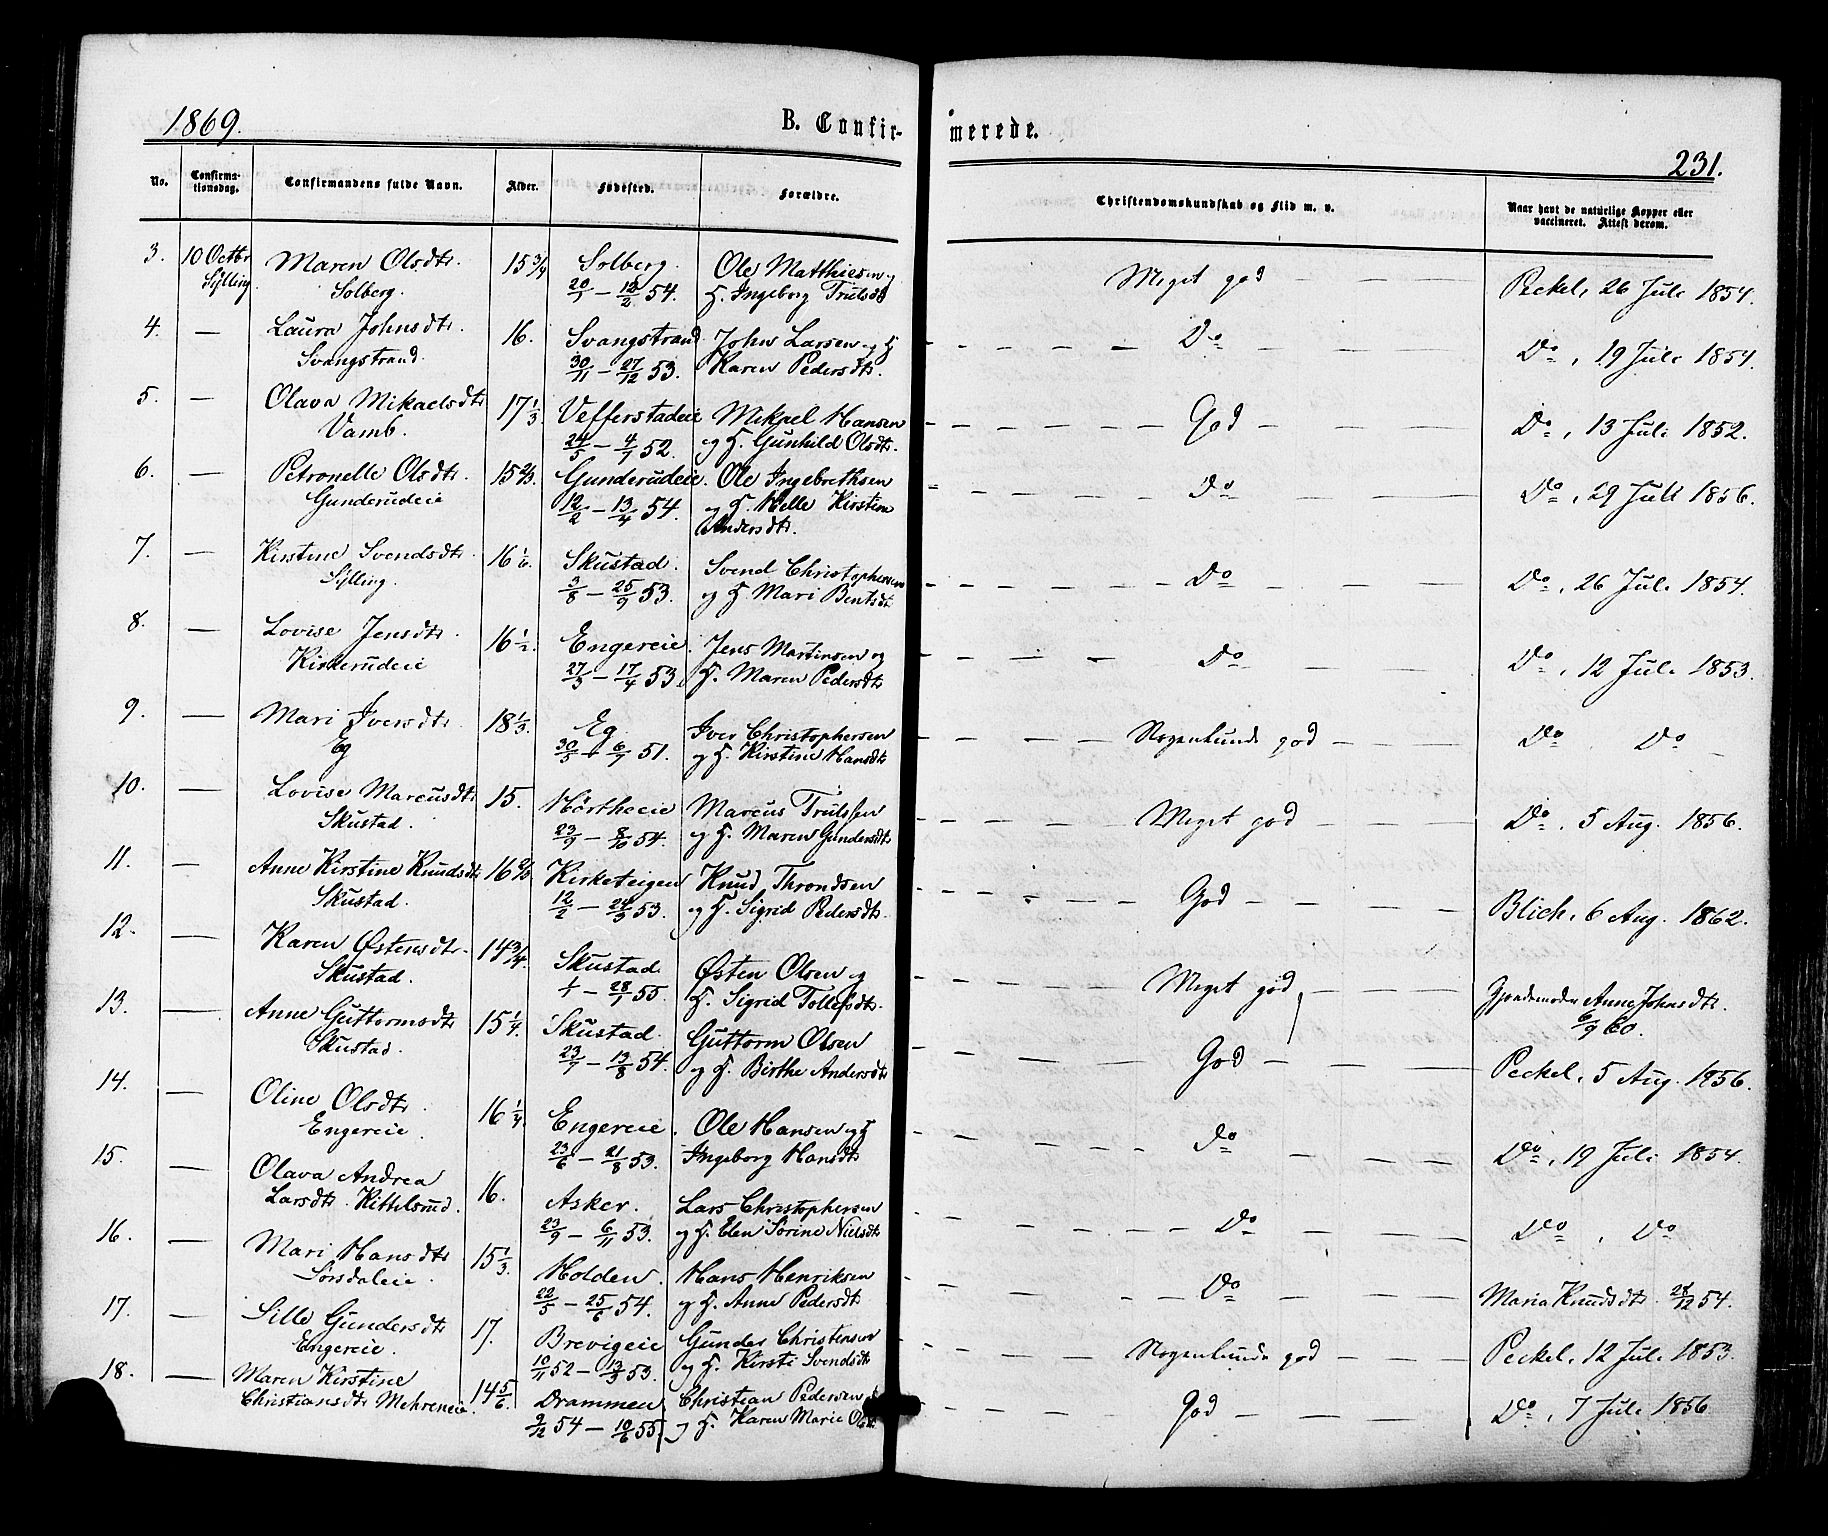 1869.
B. Confir-
merede.
231.
No.
Confirma-
tionsdag.
Confirmandens fulde Navn.
Alder.
Fødested.
Forældre.
Christendomskundskab og Flid m. v.
Naar havt de naturlige Kopper eller
vaccineret. Attest derom.
3. 10 Octbr Maren Olsdtr. 15 3/4 Solberg. Ole Matthiesen og
Sylling Solberg. 20/1 — 12/2 54. H. Ingeborg Trulsdtr
Meget god — — — Peckel, 26 Juli 1854.
4. — Laura Johnsdtr. 16. Svangstrand John Larsen og H
Svangstrand. 30/11 — 27/12 53. Karen Pedersdtr.
— — — Do — — — Do, 19 Juli 1854.
5. — Olava Mikaelsdtr 17 1/3 Vefferstadeie Mikael Hansen
Vamb. 24/5 — 4/7 52. og H. Gunhild Olsdtr.
— — — God — — — Do, 13 Juli 1852.
6. — Petronelle Olsdtr. 15 2/3. Gunderudeie. Ole Ingebrethsen
Gunderudeie 12/2 — 13/4 54. og H. Helle Kirstine
Andersdtr.
— — — Do — — — Do, 29 Juli 1856.
7. — Kirstine Svendsdtr. 16 1/6. Skustad. Svend Christophersen
Sylling. 3/8 — 25/9 53. og H. Mari Bentsdtr
— — — Do — — — Do, 26 Juli 1854.
8. — Lovise Jensdtr. 16 1/2. Engereie. Jens Martinsen og
Kinnerudeie 27/3 — 17/4 53. H. Maren Pedersdtr
— — — Do — — — Do, 12 Juli 1853.
9. — Mari Iversdtr. 18 1/3. Eg. Iver Christophersen
Eg 30/5 — 6/7 51. og H. Kirstine Hansdtr
— — — Nogenlunde god — — — Do Do
10. — Lovise Marcusdtr 15. Hørtheeie Marcus Trulssen
Skustad. 23/9 — 8/10 54. og H. Maren Gundersdtr
— — — Meget god — — — Do, 5 Aug. 1856.
11. — Anne Kirstine Knudsdtr 16 2/3 Kirketeigen Knud Throndsen
Skustad. 12/2 — 24/3 53. og H. Sigrid Pedersdtr.
— — — God — — — Blich, 6 Aug. 1862.
12. — Karen Østensdtr. 14 3/4. Skustad Østen Olsen og
Skustad. 1/1 — 28/1 55. H. Sigrid Tollefsdtr.
— — — Meget god — — — Anne Johnsdtr.
6/9 60.
13. — Anne Guttormsdtr 15 1/4. Skustad. Guttorm Olsen
Skustad. 23/7 — 13/8 54. og H. Birthe Andersdtr
— — — God — — — Peckel, 5 Aug. 1856.
14. — Oline Olsdtr. 16 1/4 Engereie. Ole Hansen og H
Engereie. 23/6 — 21/8 53. Ingeborg Hansdtr
— — — Do — — — Do, 19 Juli 1854.
15. — Olava Andrea 16. Asker. Lars Christophersen
Larsdtr. Kittelsrud. 23/9 — 6/11 53. og H. Elen Sorine Nielsdtr
— — — Do — — — Do, Do
16. — Mari Hansdtr 15 1/3. Holden. Hans Henriksen
Sørsdaleie. 22/5 — 25/6 54. og H. Anne Pedersdtr
— — — Do — — — Maria Knudsdtr. 28/12 54.
17. — Sille Gundersdtr 17. Brevigeie Gunder Christensen
Engereie. 10/11 52 — 13/3 53. og H. Kirsti Svendsdtr
Nogenlunde god — — — Peckel, 12 Juli 1853.
18. — Maren Kirstine 14 5/6. Drammen Christian Pedersen
Christiansdtr Mehreneie. 9/12 54 — 10/6 55. og H. Karen Marie
— — — God — — — Do, 7 Juli 1856